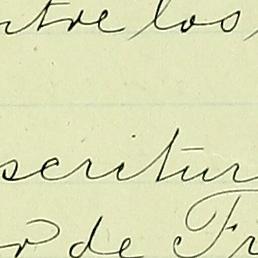 ntre los
scritur
r de Fr